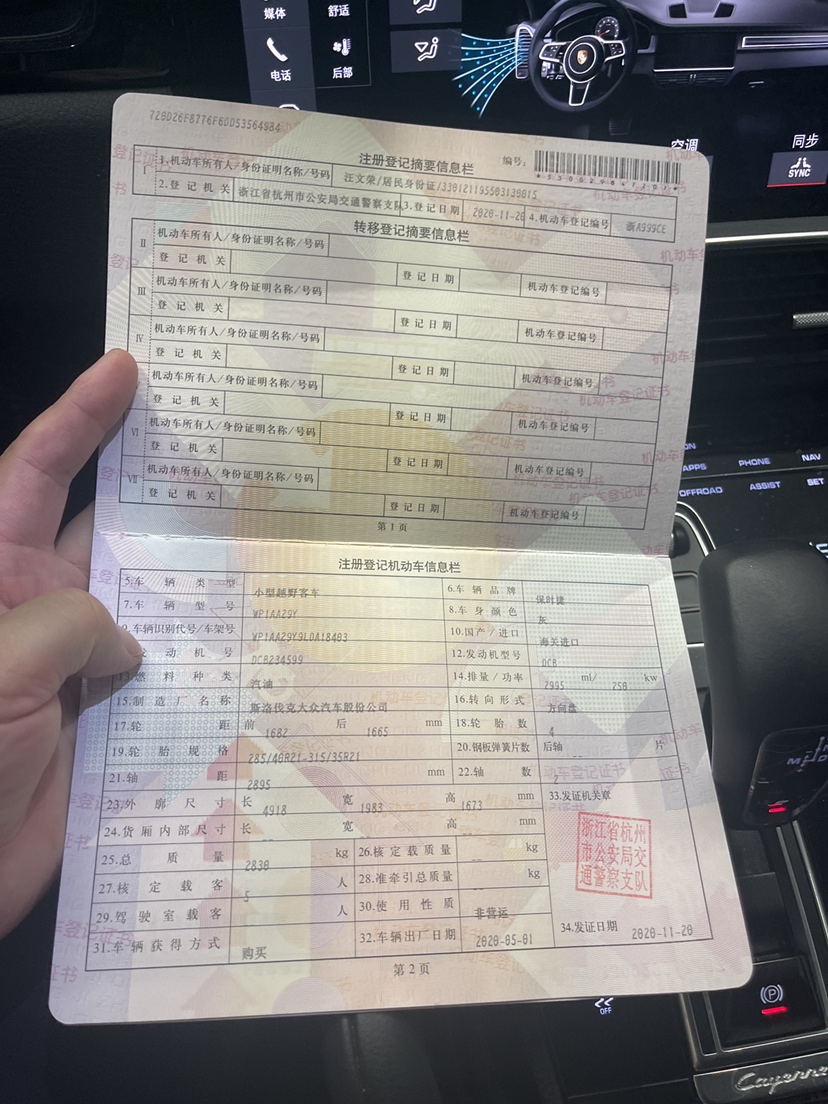 媒体
舒适
电话
后部
空调
同步
SYNC
728D26F8776F6DD53564984
注册登记摘要信息栏
编号:
I
1.机动车所有人/身份证明名称/号码
汪文荣/居民身份证/330121195503130015
2.登记机关
浙江省杭州市公安局交通警察支队
3.登记日期
2020-11-20
4.机动车登记编号
浙A999CE
转移登记摘要信息栏
II
机动车所有人/身份证明名称/号码
登记机关
登记日期
机动车登记编号
III
机动车所有人/身份证明名称/号码
登记机关
登记日期
机动车登记编号
IV
机动车所有人/身份证明名称/号码
登记机关
登记日期
机动车登记编号
机动车所有人/身份证明名称/号码
登记机关
登记日期
机动车登记编号
VI
机动车所有人/身份证明名称/号码
登记机关
登记日期
机动车登记编号
VII
机动车所有人/身份证明名称/号码
登记机关
登记日期
机动车登记编号
第1页
注册登记机动车信息栏
5.车辆类型
小型越野客车
6.车辆品牌
保时捷
7.车辆型号
WP1AA29Y
8.车身颜色
灰
9.车辆识别代号/车架号
WP1AA29Y9LDA18403
10.国产/进口
海关进口
发动机号
DCB234599
12.发动机型号
DCB
13.燃料种类
汽油
14.排量/功率
2995 ml/ 250 kw
15.制造厂名称
斯洛伐克大众汽车股份公司
16.转向形式
方向盘
17.轮距
前 1682 后 1665 mm
18.轮胎数
4
19.轮胎规格
285/40R21-315/35R21
20.钢板弹簧片数
后轴 片
21.轴距
2895 mm
22.轴数
2
23.外廓尺寸
长 4918 宽 1983 高 1673 mm
33.发证机关章
24.货厢内部尺寸
长 宽 高 mm
浙江省杭州
市公安局交
通警察支队
25.总质量
2830 kg
26.核定载质量
kg
27.核定载客
5 人
28.准牵引总质量
kg
29.驾驶室载客
人
30.使用性质
非营运
31.车辆获得方式
购买
32.车辆出厂日期
2020-05-01
34.发证日期
2020-11-20
第2页
APPS
PHONE
NAV
OFFROAD
ASSIST
SET
OFF
P
Cayenne